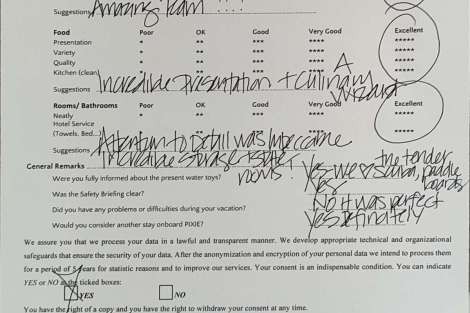 Suggestions Amazing team ....
Food Poor OK Good Very Good Excellent
Presentation * ** *** **** *****
Variety * ** *** **** *****
Quality * ** *** **** *****
Kitchen (clean) * ** *** **** *****
Suggestions Incredible Presentation + Culinary A Wizard
Rooms/ Bathrooms Poor OK Good Very Good Excellent
Neatly
Hotel Service
(Towels, Bed...) ** *****
Suggestions Attention to Detail was Impeccable
Incredible rooms!
General Remarks
Were you fully informed about the present water toys? Yes we ♡ the tender paddle boards
Was the Safety Briefing clear? Yes
Did you have any problems or difficulties during your vacation? No it was perfect
Would you consider another stay onboard PIXIE? Yes Definately
We assure you that we process your data in a lawful and transparent manner. We develop appropriate technical and organizational
safeguards that ensure the security of your data. After the anonymization and encryption of your personal data we intend to process them
for a period of 5 years for statistic reasons and to improve our services. Your consent is an indispensable condition. You can indicate
YES or NO in the ticked boxes:
YES NO
You have the right of a copy and you have the right to withdraw your consent at any time.